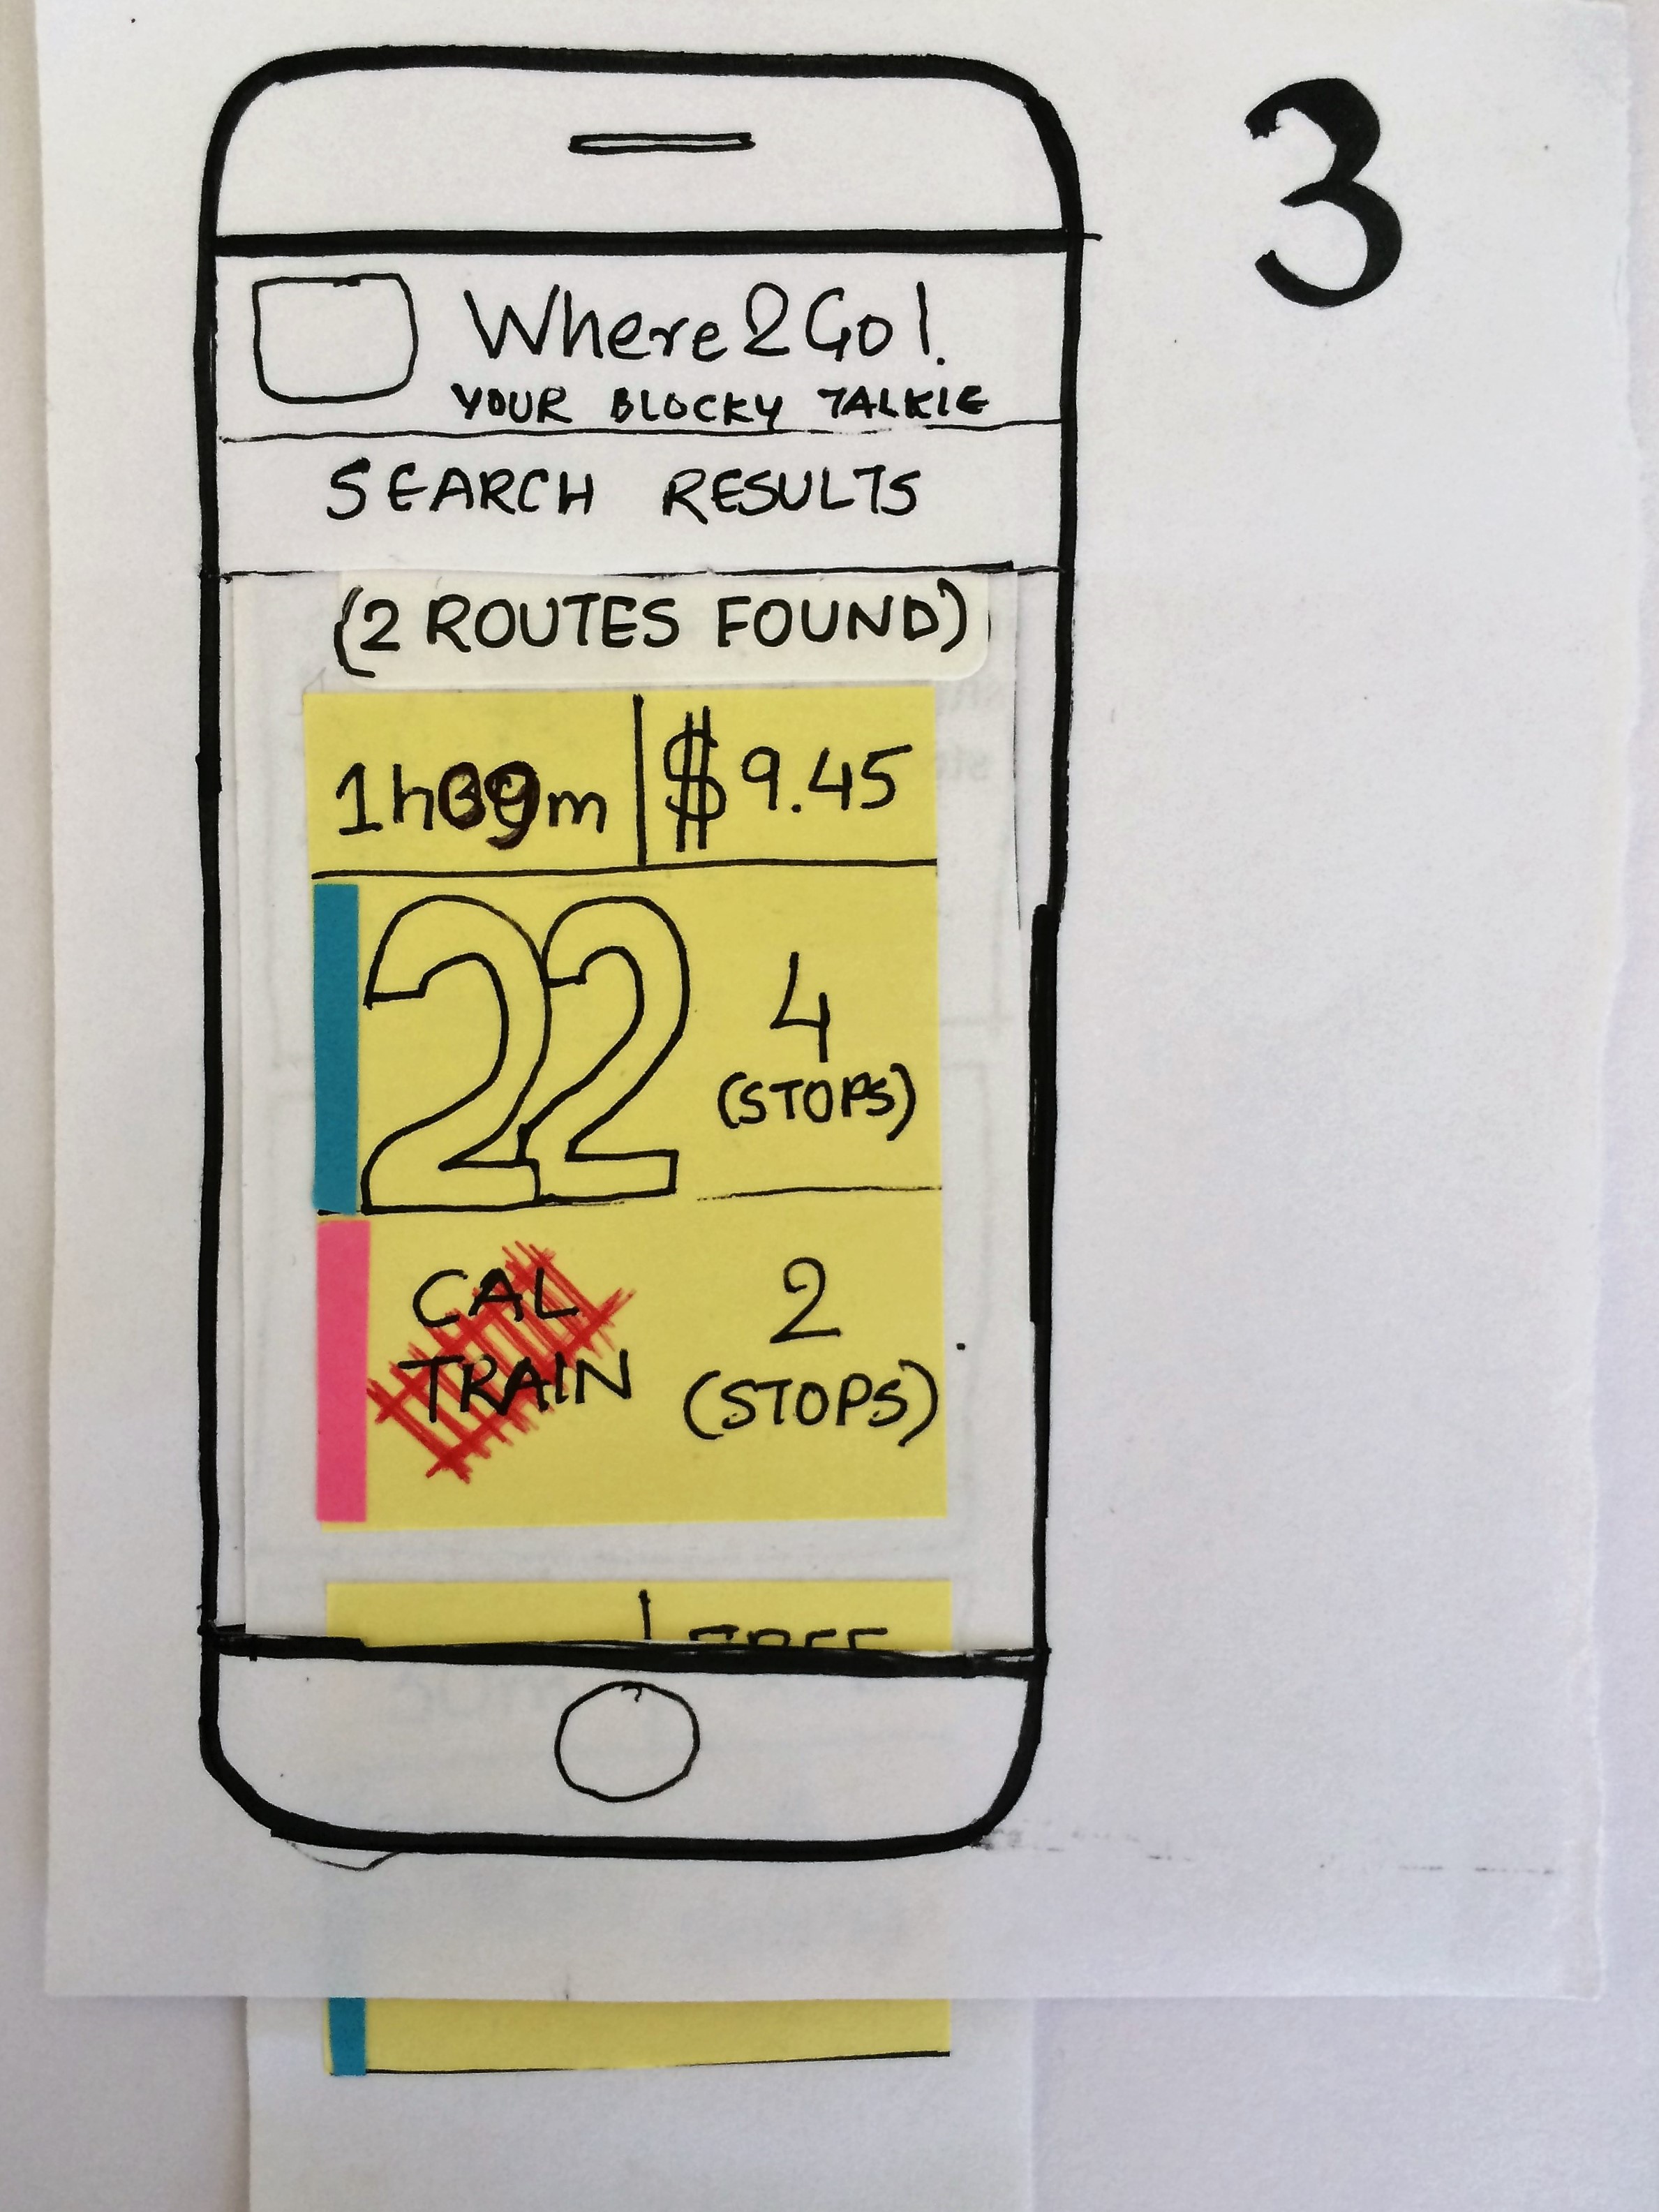 3
Where2Go!
YOUR BLOCKY TALKIE
SEARCH RESULTS
(2 ROUTES FOUND)
1h09m $9.45
22 4
(STOPS)
CAL 2
TRAIN (STOPS)